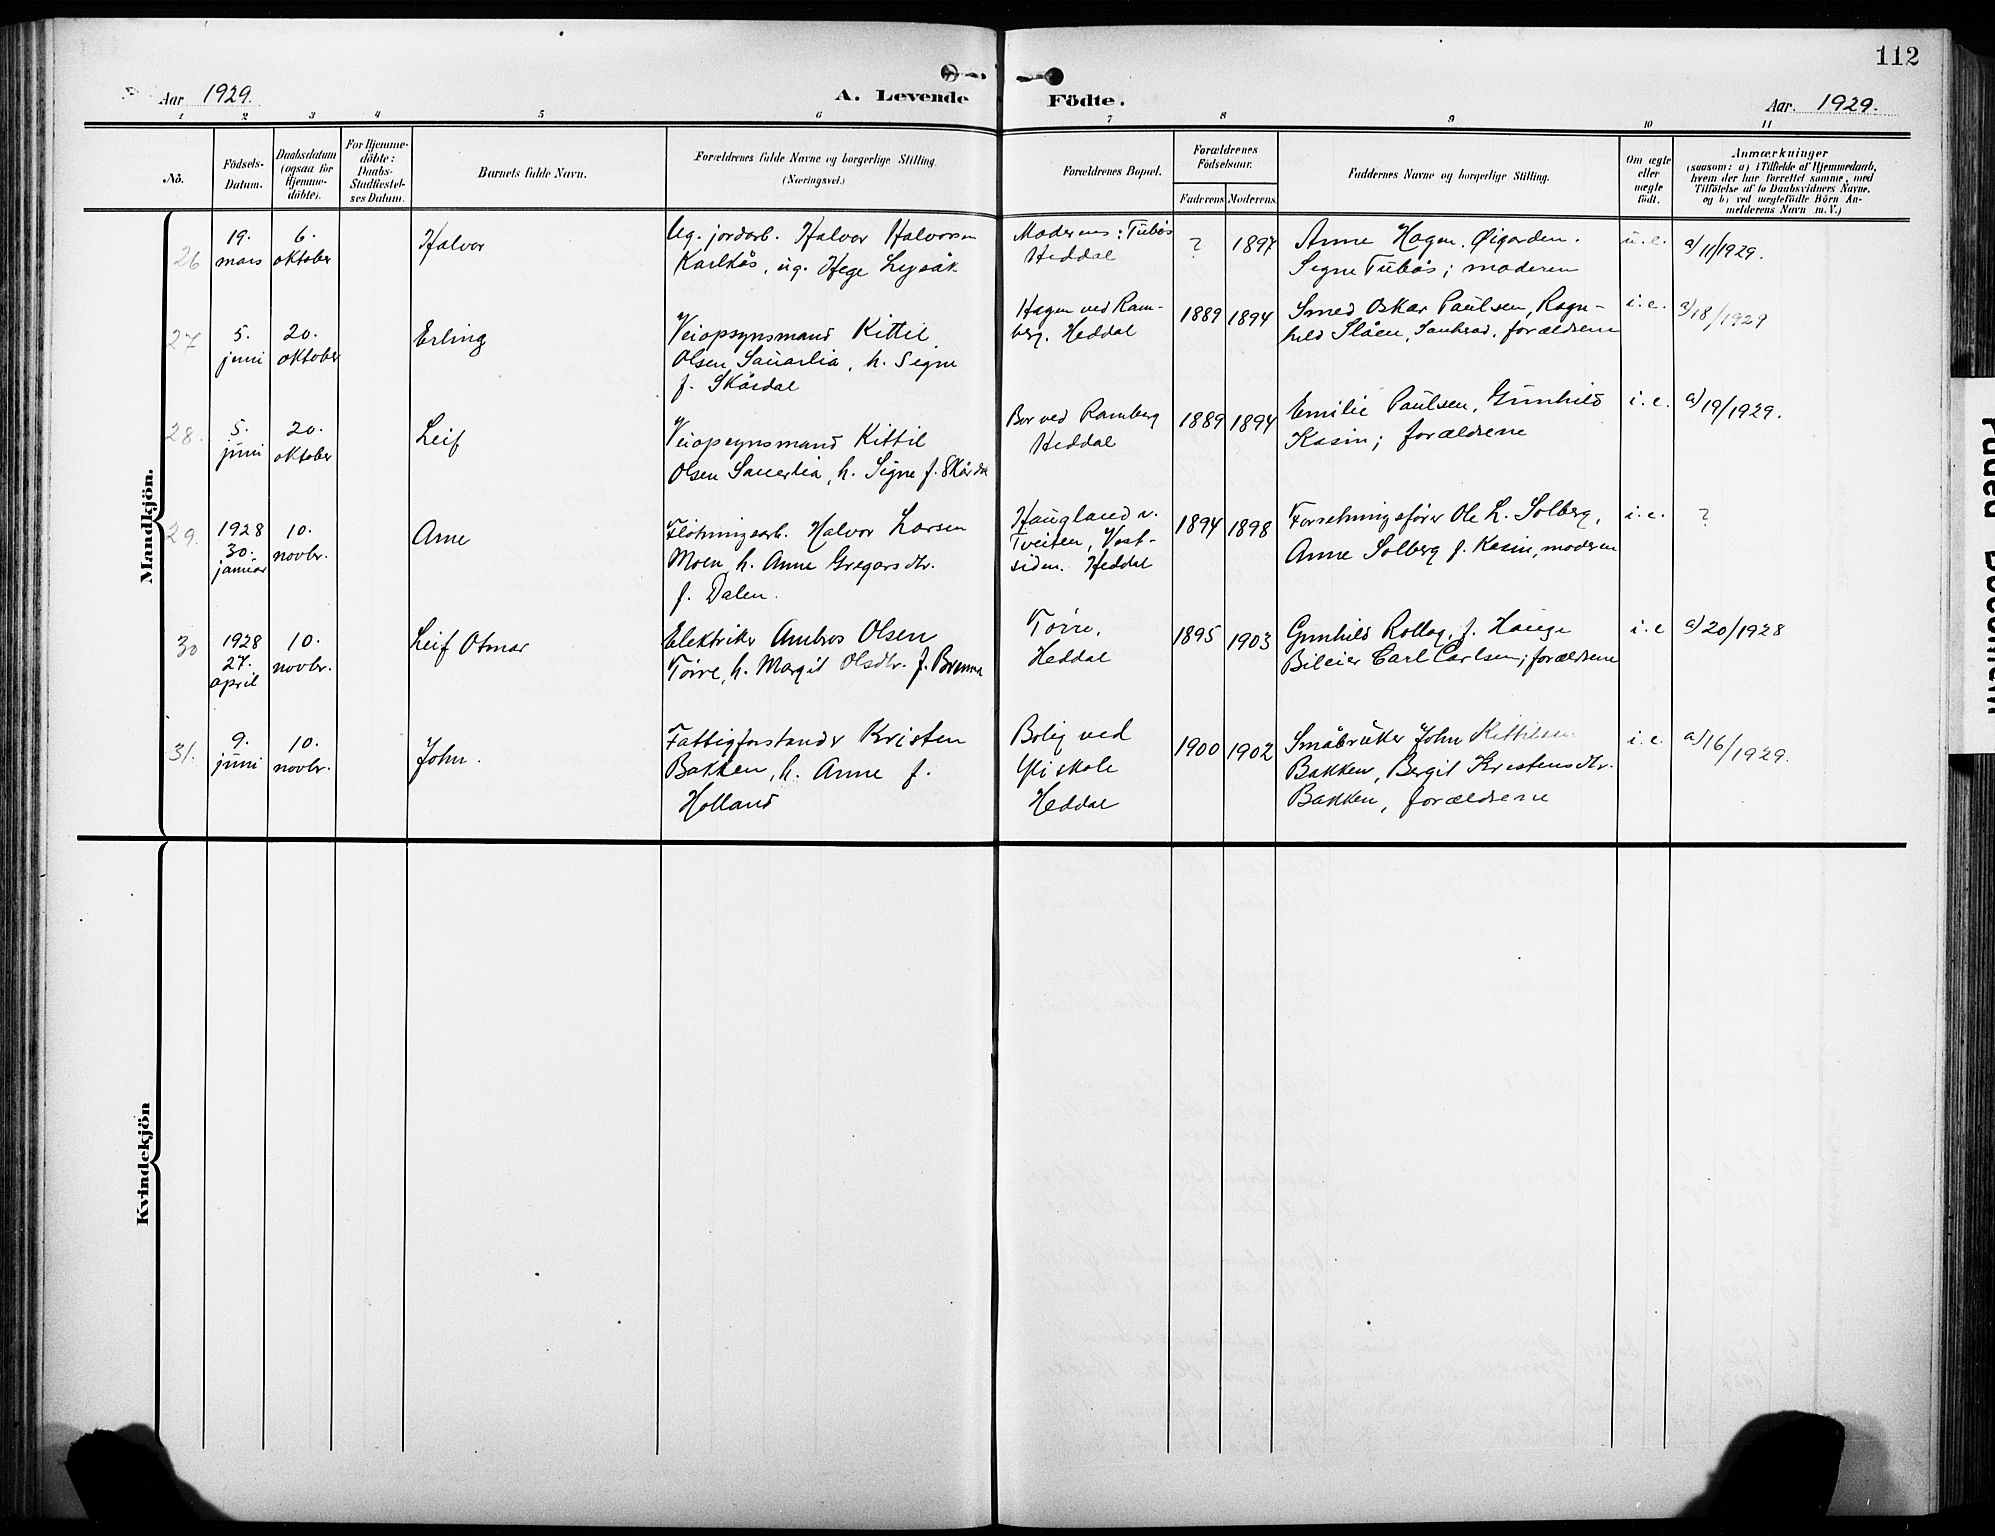 112
Aar 1929.
A. Levende Födte.
Aar. 1929.
1 2 3 4 5 6 7 8 9 10 11
No.
Födsels-
Datum.
Daabsdatum
(ogsaa for
Hjemme-
döbte).
For Hjemme-
döbte:
Daabs-
Stadfæstel-
ses Datum.
Barnets fulde Navn.
Forældrenes fulde Navne og borgerlige Stilling
(Næringsvei.)
Forældrenes Bopæl.
Forældrenes
Födselsaar.
Faderens Moderens
Faddernes Navne og borgerlige Stilling.
Om ægte
eller
uægte
født.
Anmærkninger
(saasom: a) i Tilfælde af Hjemmedaab,
hvem der har forrettet samme, med
Tilföielse af to Daabsvidners Navne.
og b) ved uægtefödte Börn An-
melderens Navn m. V.)
Mandkjön.
26
19.
mars
6.
oktober
Halvor
Ug. jordarb. Halvor Halvorsen
Karlkås, ug. Hege Lysåk
Moderens: Tubås
Heddal
?
1897
Anne Hagen, Øigarden.
Signe Tubås; moderen
u.e.
a/11/1929.
27
5.
juni
20.
oktober
Erling
Veiopsynsmand Kittil
Olsen Sauarlia, h. Signe
f. Skårdal
Hagen ved Ram-
berg. Heddal
1889
1894
Smed Oskar Paulsen, Ragn-
hild Slåen, Sauherad, forældrene
i.e.
a/18/1929
28.
5.
juni
20.
oktober
Leif
Veiopsynsmand Kittil
Olsen Sauerlia, h. Signe f. Skårdal
Bor ved Ramberg
Heddal
1889
1894
Emilie Paulsen, Gunhild
Kasin; forældrene
i.e.
a/19/1929.
29.
1928
30.
januar
10.
novbr.
Arne
Fløtningsarb. Halvor Larsen
Moen, h. Anne Gregarsdtr.
f. Dalen.
Haugland v.
Tveiten, Vest-
siden. Heddal
1894
1898
Forretningsfører Ole H. Solberg,
Anne Solberg f. Kasin, moderen
i.e.
?
30
1928
27.
april
10.
novbr.
Leif Otmar
Elektriker Ambros Olsen
Tørre, h. Margit Olsdtr. f.
Tørre,
Heddal
1895
1903
Gunhild Rollag, f. Hauge
Bileier Carl Carlsen; forældrene
i.e
a/20/1928
31.
9.
juni
10.
novbr.
John.
Fattigforstander Kristen
Bakken, h. Anne f.
Holland
Bolig ved
Yli skole
Heddal
1900
1902
Småbruker John Kittilsen
Bakken, Bergit Kristensdtr.
Bakken, forældrene
i.e.
a/16/1929.
Kvindekjön